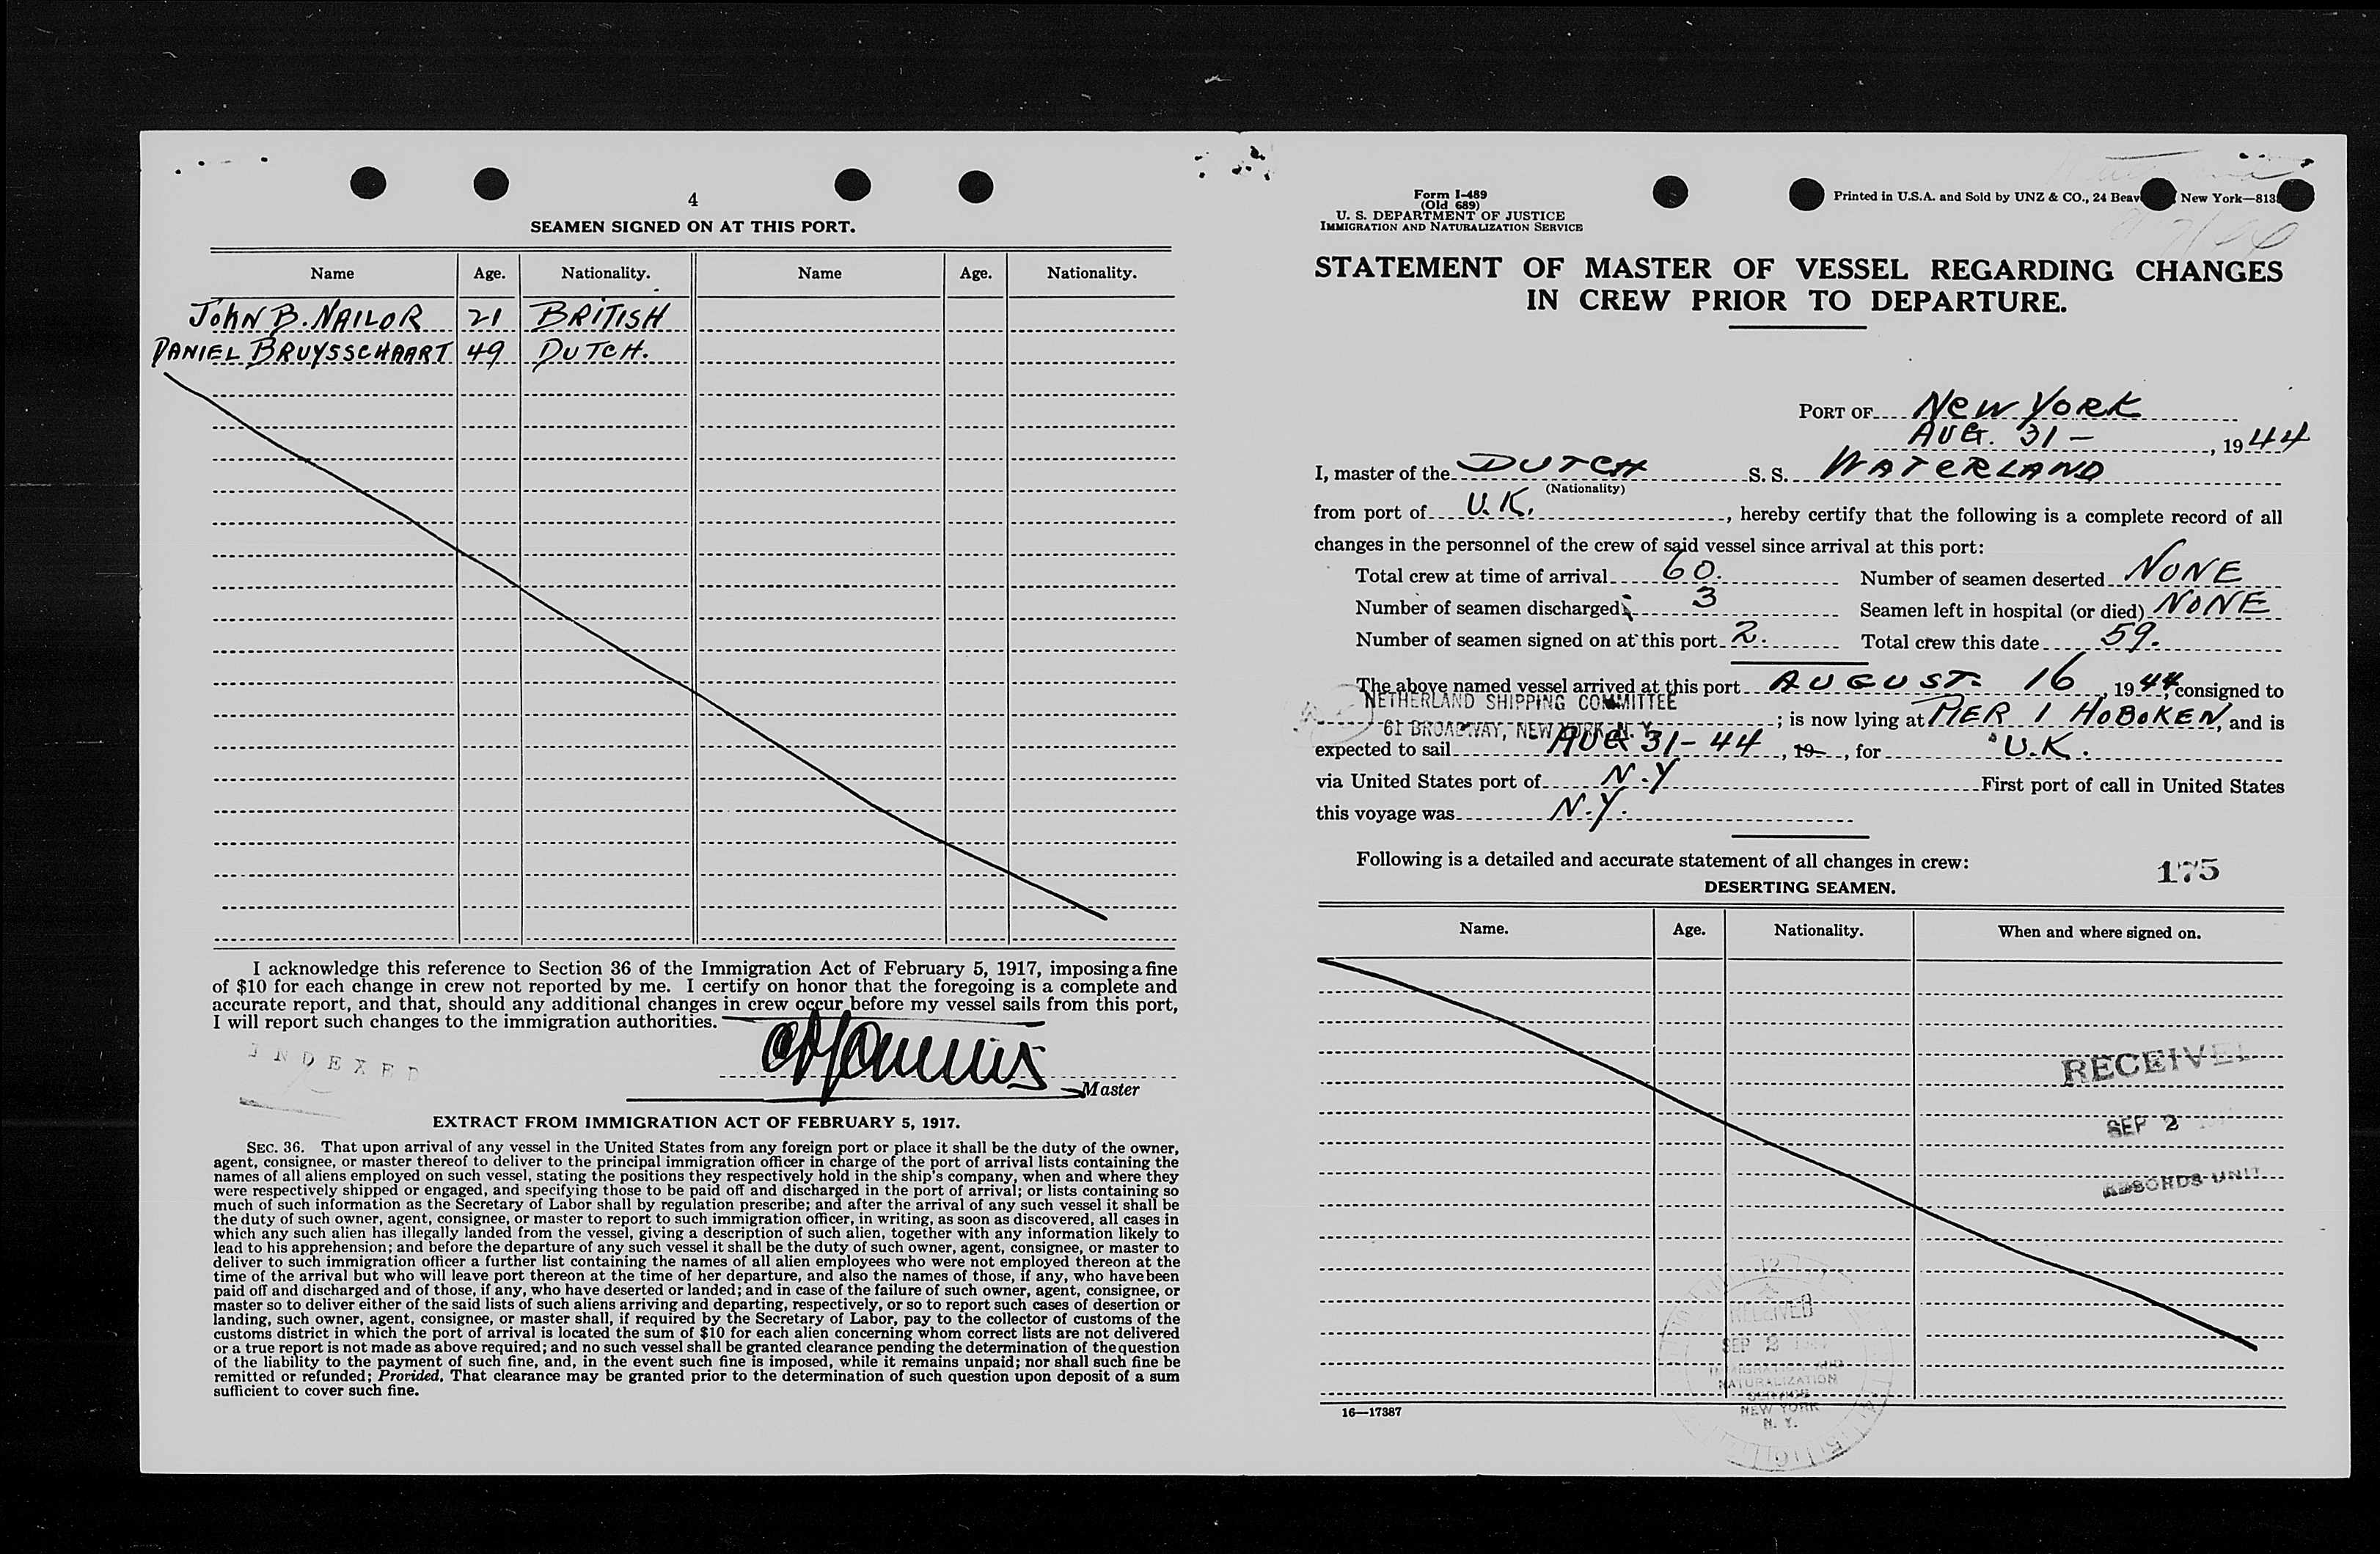 4
SEAMEN SIGNED ON AT THIS PORT.
Name Age. Nationality. Name Age. Nationality.
JOHN B. NAILOR 21 BRITISH
DANIEL BRUYSSCHAART 49 DUTCH.
I acknowledge this reference to Section 36 of the Immigration Act of February 5, 1917, imposing a fine
of $10 for each change in crew not reported by me. I certify on honor that the foregoing is a complete and
accurate report, and that, should any additional changes in crew occur before my vessel sails from this port,
I will report such changes to the immigration authorities.
INDEXED
Master
EXTRACT FROM IMMIGRATION ACT OF FEBRUARY 5, 1917.
SEC. 36. That upon arrival of any vessel in the United States from any foreign port or place it shall be the duty of the owner,
agent, consignee, or master thereof to deliver to the principal immigration officer in charge of the port of arrival lists containing the
names of all aliens employed on such vessel, stating the positions they respectively hold in the ship's company, when and where they
were respectively shipped or engaged, and specifying those to be paid off and discharged in the port of arrival; or lists containing so
much of such information as the Secretary of Labor shall by regulation prescribe; and after the arrival of any such vessel it shall be
the duty of such owner, agent, consignee, or master to report to such immigration officer, in writing, as soon as discovered, all cases in
which any such alien has illegally landed from the vessel, giving a description of such alien, together with any information likely to
lead to his apprehension; and before the departure of any such vessel it shall be the duty of such owner, agent, consignee, or master to
deliver to such immigration officer a further list containing the names of all alien employees who were not employed thereon at the
time of the arrival but who will leave port thereon at the time of her departure, and also the names of those, if any, who have been
paid off and discharged and of those, if any, who have deserted or landed; and in case of the failure of such owner, agent, consignee, or
master so to deliver either of the said lists of such aliens arriving and departing, respectively, or so to report such cases of desertion or
landing, such owner, agent, consignee, or master shall, if required by the Secretary of Labor, pay to the collector of customs of the
customs district in which the port of arrival is located the sum of $10 for each alien concerning whom correct lists are not delivered
or a true report is not made as above required; and no such vessel shall be granted clearance pending the determination of the question
of the liability to the payment of such fine, and, in the event such fine is imposed, while it remains unpaid; nor shall such fine be
remitted or refunded; Provided, That clearance may be granted prior to the determination of such question upon deposit of a sum
sufficient to cover such fine.
Form I-489
(Old 689)
U. S. DEPARTMENT OF JUSTICE
IMMIGRATION AND NATURALIZATION SERVICE
Printed in U.S.A. and Sold by UNZ & CO., 24 Beav New York—813
STATEMENT OF MASTER OF VESSEL REGARDING CHANGES
IN CREW PRIOR TO DEPARTURE.
PORT OF NEW YORK
AUG. 31 —, 1944
I, master of the DUTCH S. S. WATERLAND
(Nationality)
from port of U.K., hereby certify that the following is a complete record of all
changes in the personnel of the crew of said vessel since arrival at this port:
Total crew at time of arrival 60. Number of seamen deserted NONE
Number of seamen discharged 3 Seamen left in hospital (or died) NONE
Number of seamen signed on at this port 2. Total crew this date 59.
The above named vessel arrived at this port AUGUST 16, 1944, consigned to
NETHERLAND SHIPPING COMMITTEE
61 BROADWAY, NEW YORK, N. Y. ; is now lying at PIER 1 HOBOKEN, and is
expected to sail AUG 31-44, 19 , for U.K.
via United States port of N.Y First port of call in United States
this voyage was N.Y.
Following is a detailed and accurate statement of all changes in crew:
175
DESERTING SEAMEN.
Name. Age. Nationality. When and where signed on.
RECEIVED
SEP 2
RECORDS UNIT
RECEIVED
SEP 2
IMMIGRATION AND
NATURALIZATION
SERVICE
NEW YORK
N. Y.
16—17387